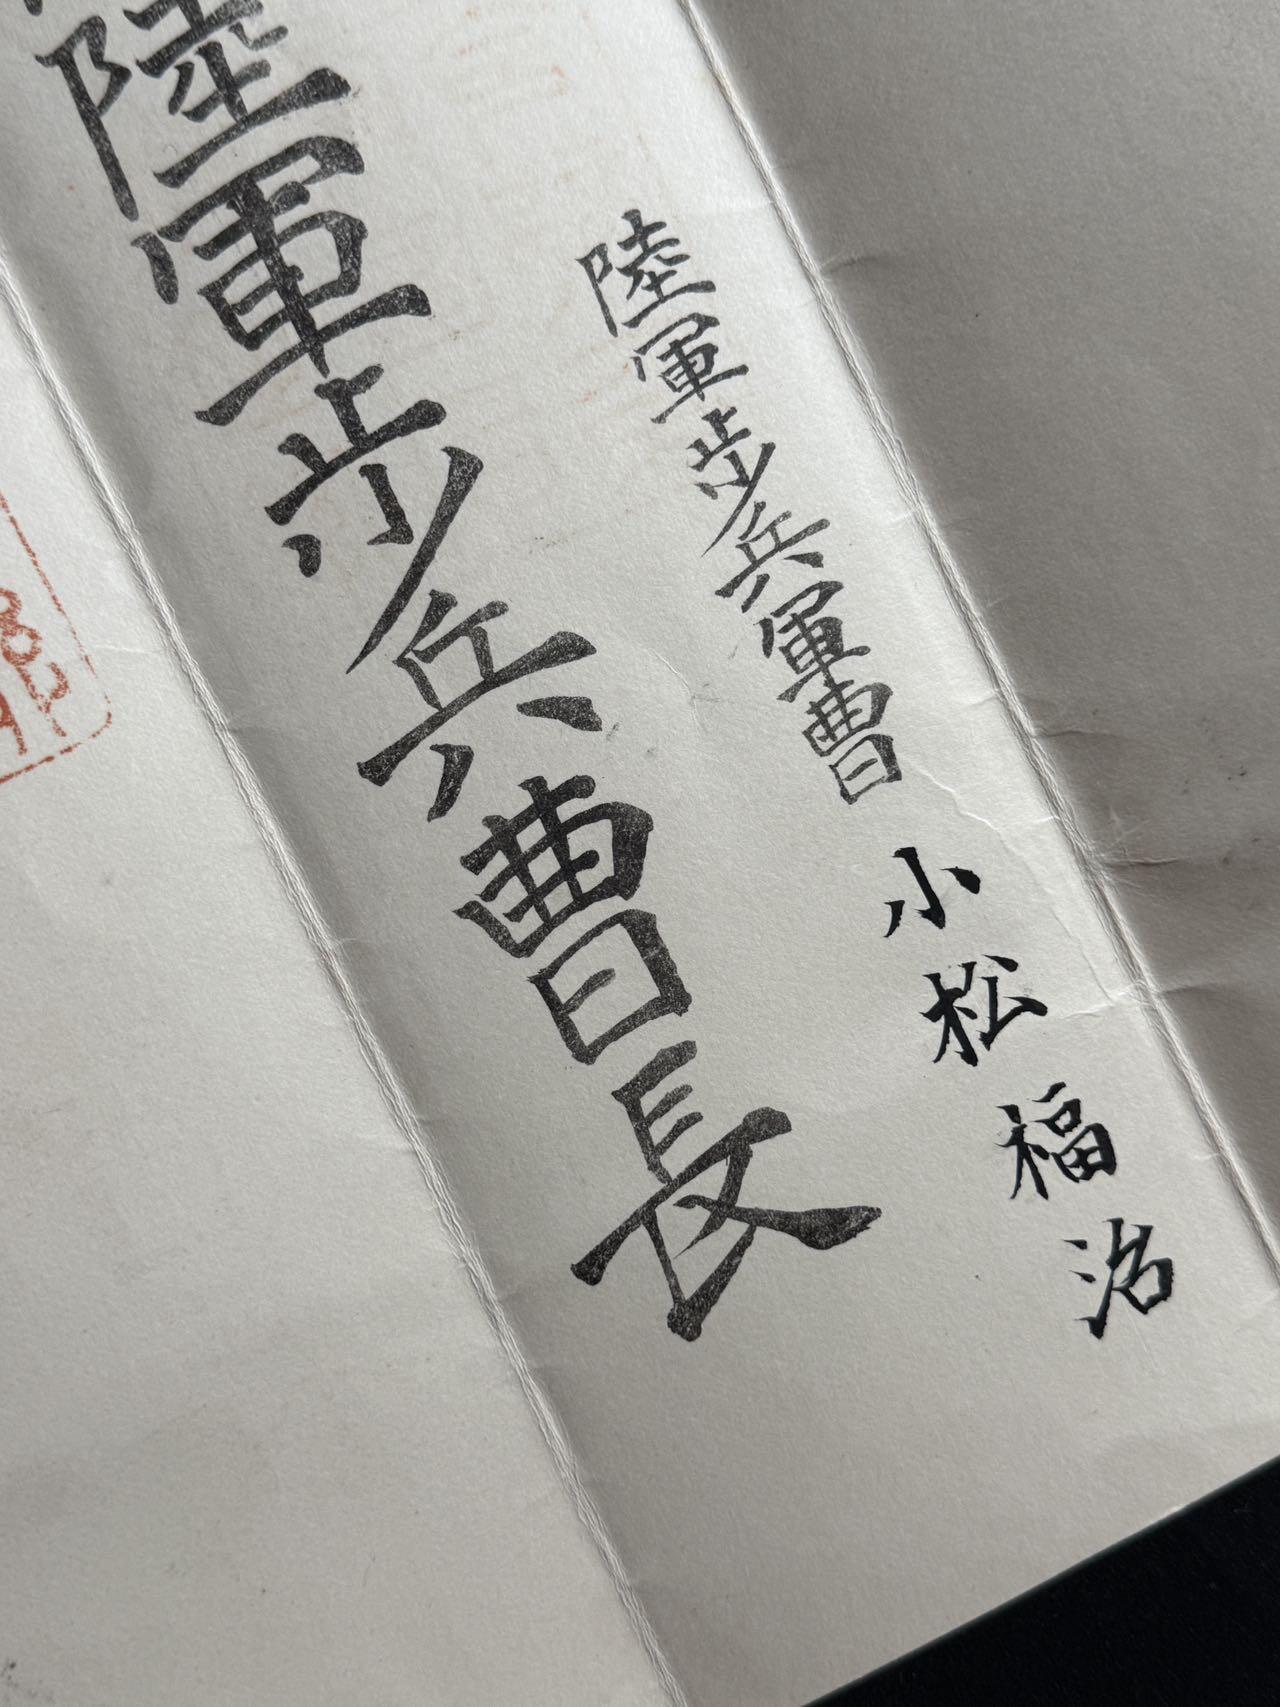 陸軍歩兵軍曹 小松福治
陸軍歩兵曹長